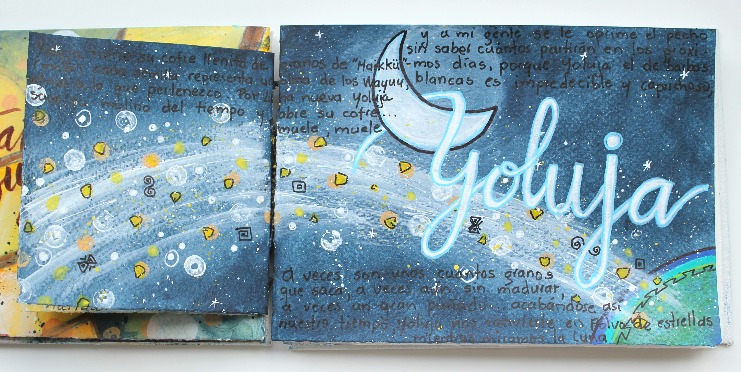 y a mi gente se le oprime el pecho
sin saber cuántos partirán en los próxi-
su cofre lleno de granos de "Maikkü" -mos días, porque Yoluja el de barbas
representa un de los Wayuu, blancas es impredecible y caprichoso,
que pertenezco. Por luna nueva Yoluja
molino del tiempo y abre su cofre...
muele, muele
Yoluja
a veces son unos cuantos granos
que saca, a veces aún sin madurar,
a veces un gran puñado acabándose así
nuestro tiempo, Yoluja nos convierte en Polvo de estrellas
mientras miramos la Luna